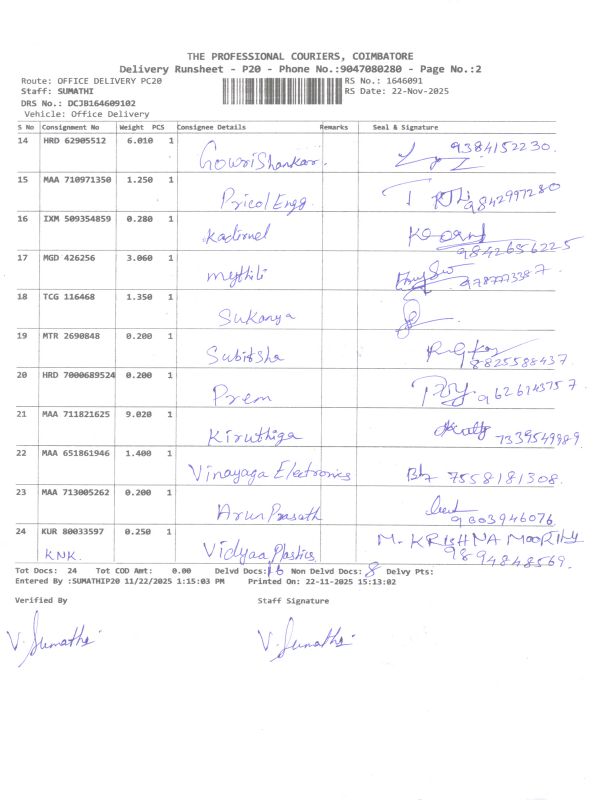 THE PROFESSIONAL COURIERS, COIMBATORE
Delivery Runsheet - P20 - Phone No.:9047080280 - Page No.:2
Route: OFFICE DELIVERY PC20 RS No.: 1646091
Staff: SUMATHI RS Date: 22-Nov-2025
DRS No.: DCJB164609102
Vehicle: Office Delivery
S No Consignment No Weight PCS Consignee Details Remarks Seal & Signature
14 HRD 62905512 6.010 1 GowriShankar. 9384152230.
15 MAA 710971350 1.250 1 Pricol Engg. 9842997280
16 IXM 509354859 0.280 1 Kadirvel 9842656225
17 MGD 426256 3.060 1 mythili
18 TCG 116468 1.350 1 Sukanya
19 MTR 2690848 0.200 1 Subitsha 8825588437.
20 HRD 7000689524 0.200 1 Prem
21 MAA 711821625 9.020 1 Kiruthiga 7339549989.
22 MAA 651861946 1.400 1 Vinayaga Electronics 7558181308.
23 MAA 713005262 0.200 1 Arun Prasath 9003946076.
24 KUR 80033597 0.250 1 Vidyaa Plastics. M. KRISHNA MOORTHY
KNK. 9894848569.
Tot Docs: 24 Tot COD Amt: 0.00 Delvd Docs: 16 Non Delvd Docs: 8 Delvy Pts:
Entered By :SUMATHIP20 11/22/2025 1:15:03 PM Printed On: 22-11-2025 15:13:02
Verified By Staff Signature
V. Sumathi V. Sumathi